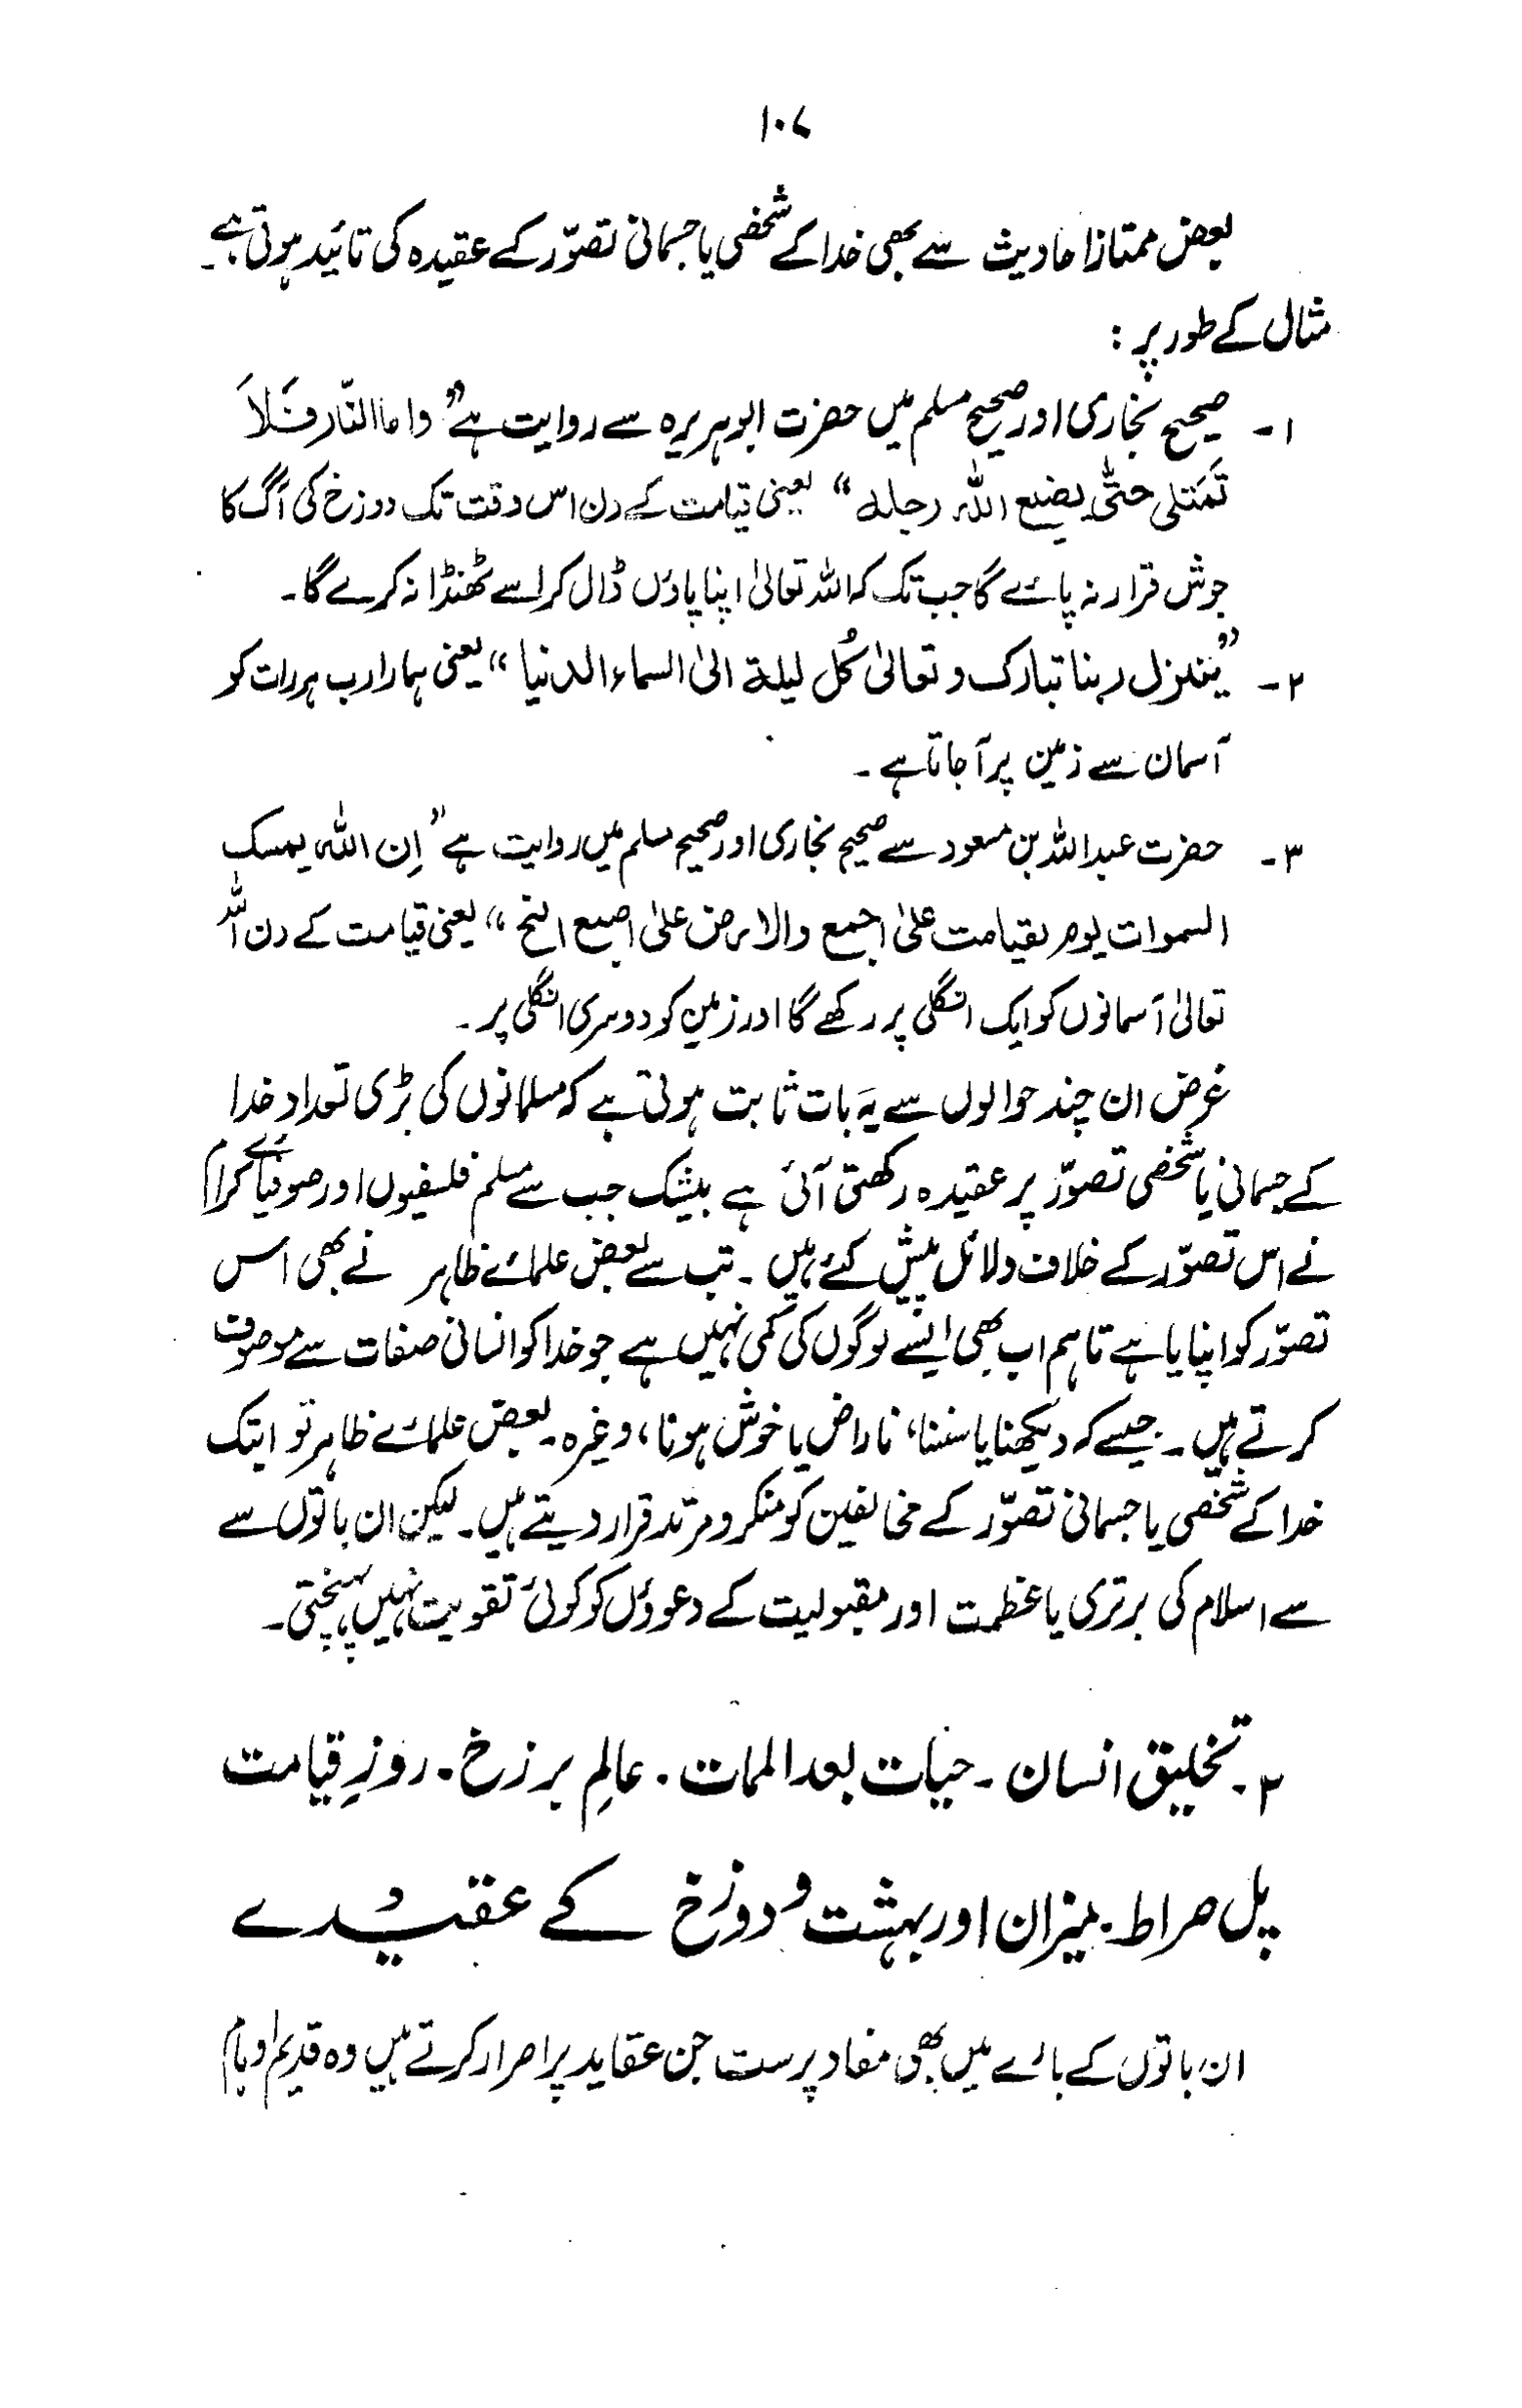 ۱۰۷
بعض ممتاز احادیث سے بھی خدا کے شخصی یا جسمانی تصوّر کے عقیدہ کی تائید ہوتی ہے۔
مثال کے طور پر :
۱۔ صحیح بخاری اور صحیح مسلم میں حضرت ابو ہریرہ سے روایت ہے ”واما النّار فَلاَ
تَمَتلی حتّٰی یضیع اللہ رجلہ“ یعنی قیامت کے دن اس وقت تک دوزخ کی آگ کا
جوش قرار نہ پائے گا جب تک کہ اللہ تعالیٰ اپنا پاؤں ڈال کر اسے ٹھنڈا نہ کرے گا۔
۲۔ ”یُنزل ربنا تبارک و تعالیٰ کُل لیلة الیٰ السماء الدنیا“ یعنی ہمارا رب ہر رات کو
آسمان سے زمین پر آ جاتا ہے۔
۳۔ حضرت عبداللہ بن مسعود سے صحیح بخاری اور صحیح مسلم میں روایت ہے ”اِن اللہ یمسک
السموات یوم بقیامت علیٰ اجمع والارض علیٰ اصبع الخ“ یعنی قیامت کے دن اللہ
تعالیٰ آسمانوں کو ایک انگلی پر رکھے گا اور زمین کو دوسری انگلی پر۔
غرض ان چند حوالوں سے یہ بات ثابت ہوتی ہے کہ مسلمانوں کی بڑی تعداد خدا
کے جسمانی یا شخصی تصوّر پر عقیدہ رکھتی آئی ہے بیشک جب سے مسلم فلسفیوں اور صوفیائے کرام
نے اس تصوّر کے خلاف دلائل پیش کئے ہیں۔ تب سے بعض علمائے ظاہر نے بھی اس
تصوّر کو اپنایا ہے تاہم اب بھی ایسے لوگوں کی کمی نہیں ہے جو خدا کو انسانی صفات سے موصوف
کرتے ہیں۔ جیسے کہ دیکھنا یا سننا، ناراض یا خوش ہونا، وغیرہ۔ بعض علمائے ظاہر تو ابتک
خدا کے شخصی یا جسمانی تصوّر کے مخالفین کو منکر و مرتد قرار دیتے ہیں۔ لیکن ان باتوں سے
سے اسلام کی برتری یا عظمت اور مقبولیت کے دعوؤں کو کوئی تقویت نہیں پہنچتی۔
۲۔ تخلیق انسان۔ حیات بعد الممات۔ عالمِ برزخ۔ روزِ قیامت
پل صراط۔ میزان اور بہشت و دوزخ کے عقیدے
ان باتوں کے بارے میں بھی مفاد پرست جن عقاید پر اصرار کرتے ہیں وہ قدیم اوہام